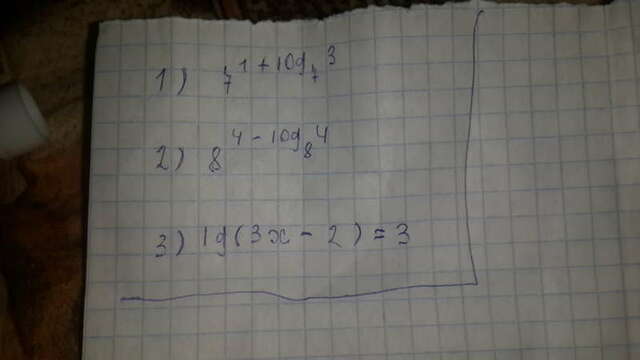 1) 7^{1+log_7 3}
2) 8^{4-log_8 4}
3) lg(3x-2)=3